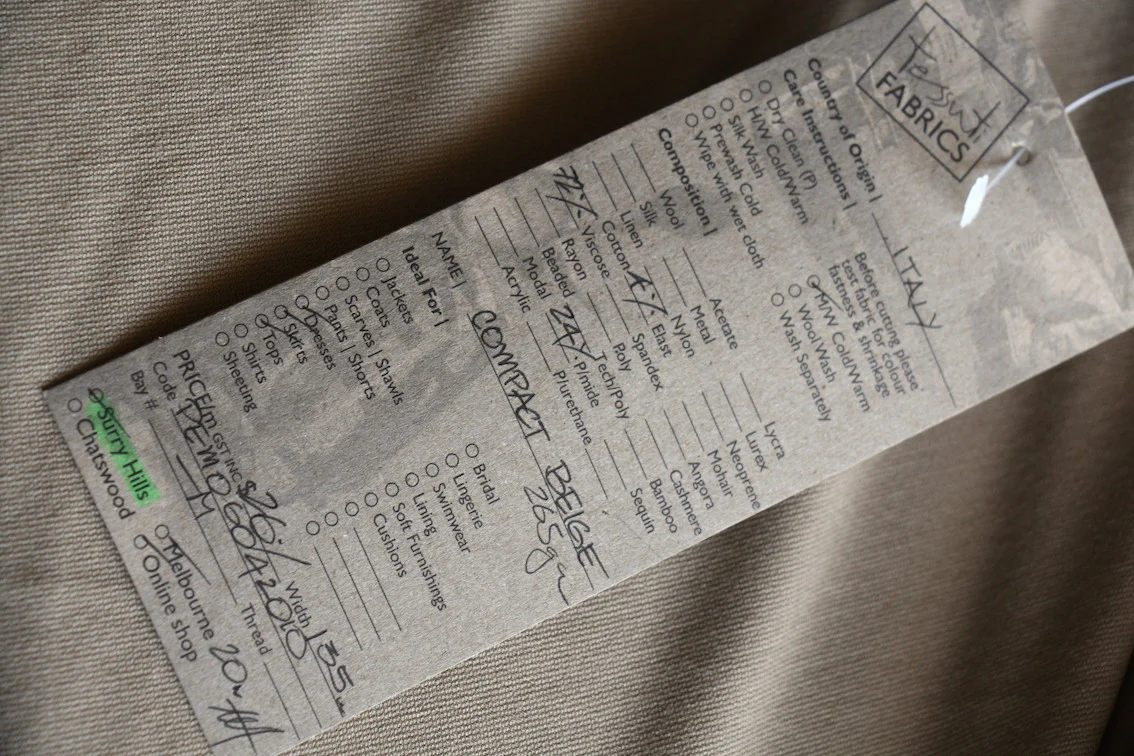 Tessuti
FABRICS
Country of Origin | ITALY
Care Instructions |
Before cutting please
test fabric for colour
fastness & shrinkage
Dry Clean (P)
H/W Cold/Warm
Silk Wash
Prewash Cold
Wipe with wet cloth
M/W Cold/Warm
Wool Wash
Wash Separately
Composition |
Wool
Silk
Linen
Cotton
72% Viscose
Rayon
Beaded
Modal
Acrylic
Acetate
Metal
Nylon
4% Elast
Spandex
Poly
Tech/Poly
24% P/mide
P/urethane
Lycra
Lurex
Neoprene
Mohair
Angora
Cashmere
Bamboo
Sequin
NAME | COMPACT BEIGE
265g
Ideal For |
Jackets
Coats
Scarves | Shawls
Pants | Shorts
Dresses
Skirts
Tops
Shirts
Sheeting
Bridal
Lingerie
Swimwear
Lining
Soft Furnishings
Cushions
PRICE/m GST INC $26.- Width 135
Code
Bay # M Thread
Surry Hills
Chatswood
Melbourne 20m
Online shop